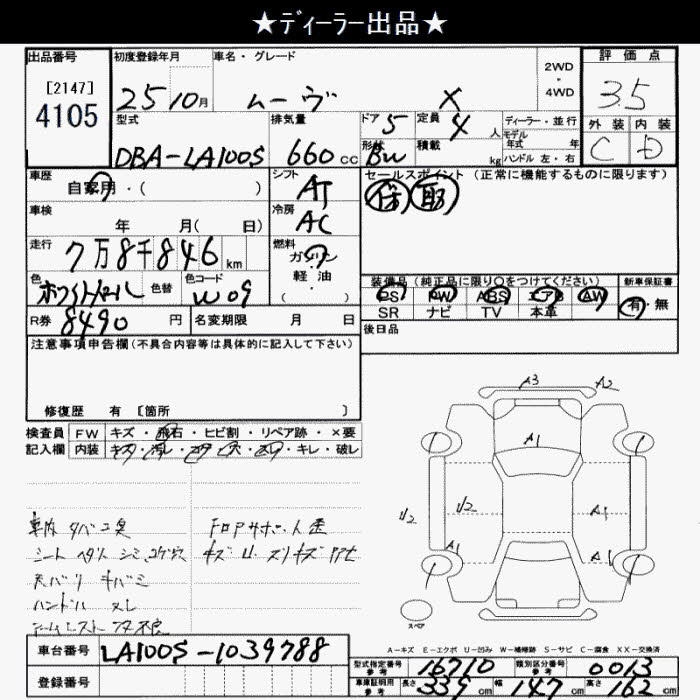 ★ディーラー出品★
出品番号
[2147]
4105
初度登録年月
25 10月
車名・グレード
ムーヴ X
2WD
・
4WD
評価点
3.5
外装 内装
C D
型式
DBA-LA100S
排気量
660 cc
ドア 5
形状 BW
定員 4 人
積載 kg
ディーラー・並行
モデル
年式 年
ハンドル 左・右
車歴
自家用・( )
シフト
AT
セールスポイント (正常に機能するものに限ります)
保 取
車検
年 月( 日)
冷房
AC
走行
7万8千846 km
燃料
ガソリン
軽・油
( )
色
ホワイトパール
色替
色コード
W09
装備品 (純正品に限り○をつけてください)
PS PW ABS エアB AW
SR ナビ TV 本革
新車保証書
有・無
R券 8490 円
名変期限 月 日
後日品
注意事項申告欄 (不具合内容等は具体的に記入して下さい)
修復歴 有 [箇所 ]
検査員 FW キズ・飛石・ヒビ割・リペア跡・×要
記入欄 内装 キズ・汚レ・コゲ・穴・ヌレ・キレ・破レ
車内 タバコ臭
シート ヘタリ シミ、コゲ穴
天バリ キバミ
ハンドル スレ
FロアサポートA歪
A3
A2
A1
U2
U2
A1
A1
A1
スペア
A-キズ E-エクボ U-凹み W-補修跡 S-サビ C-腐食 XX-交換済
車台番号 LA100S-1039788
登録番号
型式指定番号
参考
16710
類別区分番号
参考
0013
車庫証明用
参考
長さ 339 cm
幅 147 cm
高さ 162 cm